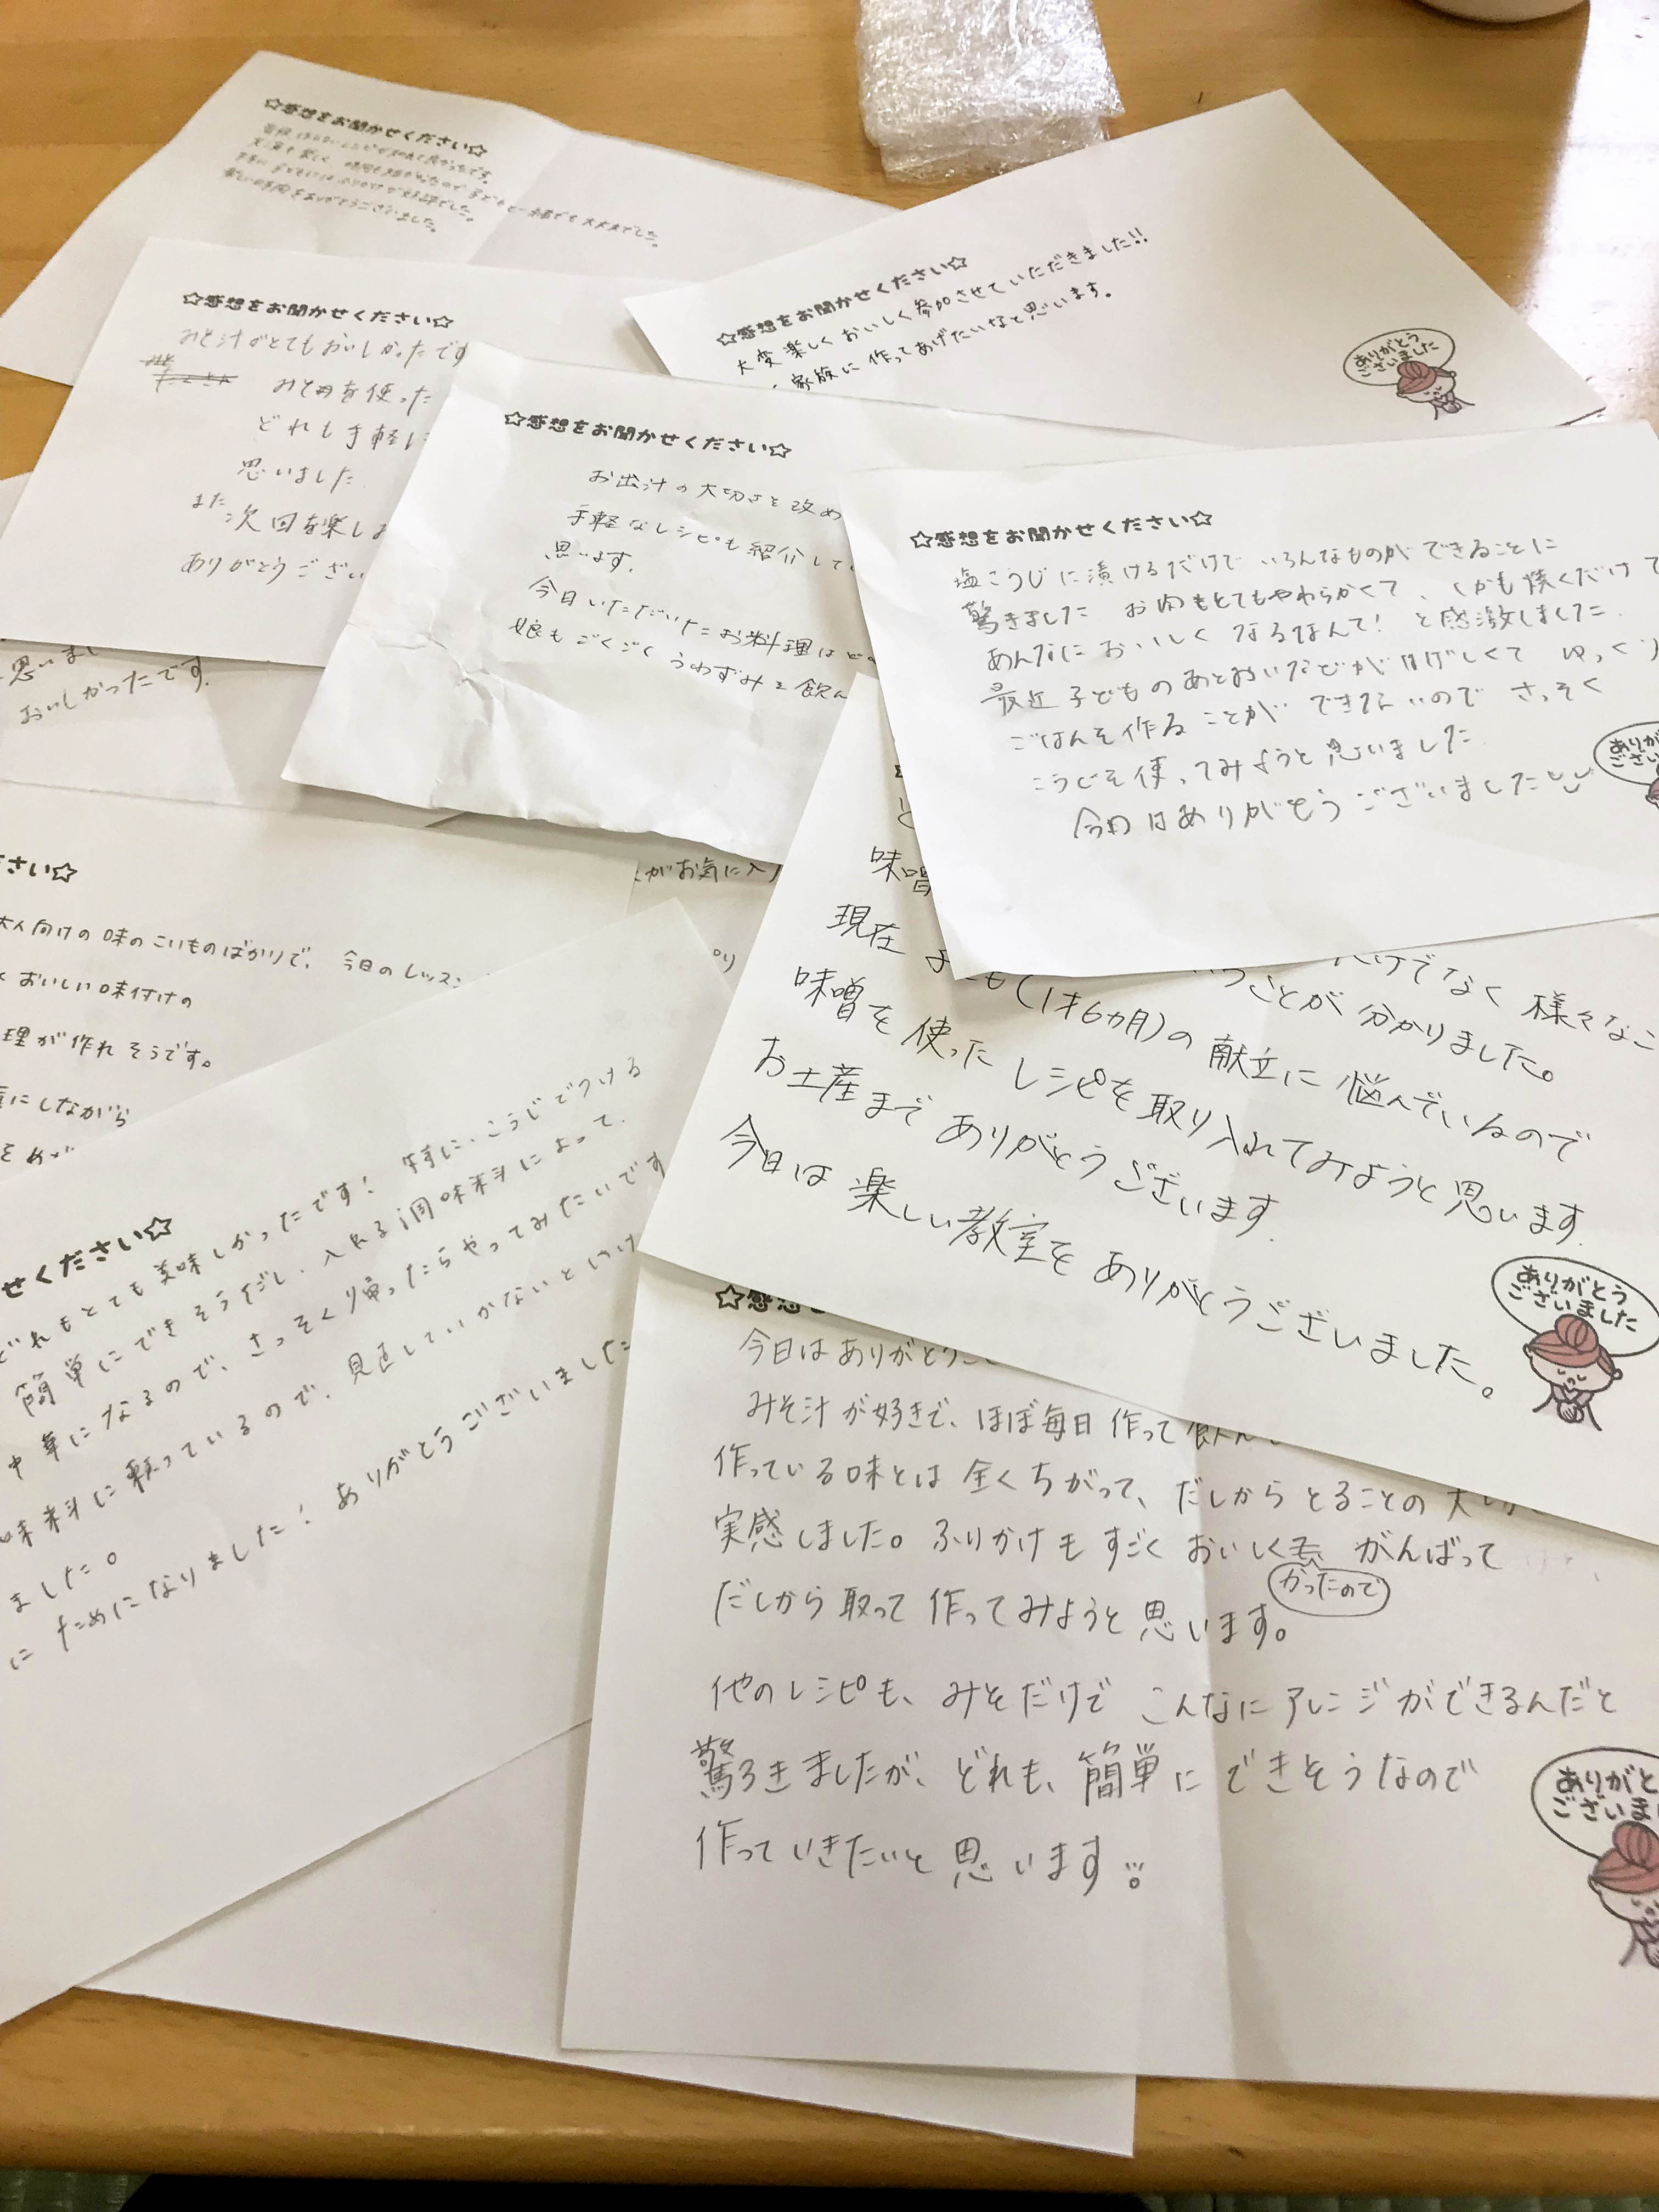 ☆感想をお聞かせください☆
☆感想をお聞かせください☆
大変楽しくおいしく参加させていただきました!!
家族に作ってあげたいなと思います。
ありがとう
ございました
☆感想をお聞かせください☆
みそ汁がとてもおいしかったです
みそ を使った
どれも手軽に
思いました
また次回を楽しみ
ありがとうござい
☆感想をお聞かせください☆
お出汁の大切さを改め
手軽なレシピも紹介して
思います。
今日いただいたお料理はど
娘もごくごくうわずみを飲ん
☆感想をお聞かせください☆
塩こうじに漬けるだけでいろんなものができることに
驚きました お肉もとてもやわらかくて、しかも焼くだけで
あんなにおいしくなるなんて!と感激しました
最近子どものあとおいなどがはげしくて ゆっくり
ごはんを作ることができないので さっそく
こうじを使ってみようと思いました
今日はありがとうございました
ありが
ござい
思いまし
おいしかったです。
がお気に入り
さい☆
大人向けの味のこいものばかりで、今日のレッスン
おいしい味付けの
理が作れそうです。
にしながら
味噌
だけでなく様々なこ
現在
ことが分かりました。
も(1才6カ月)の献立に悩んでいるので
味噌を使ったレシピを取り入れてみようと思います。
お土産までありがとうございます。
今日は楽しい教室をありがとうございました。
ありがとう
ございました
せください☆
どれもとても美味しかったです!特に、こうじでつける
簡単にできそうだし、入れる調味料によって、
中華になるので、さっそく帰ったらやってみたいです
味料に頼っているので、見直していかないといけ
ました。
にためになりました!ありがとうございました
☆感想
今日はありがとうご
みそ汁が好きで、ほぼ毎日作って飲ん
作っている味とは全くちがって、だしからとることの大
実感しました。ふりかけもすごくおいしく がんばって
かったので
だしから取って作ってみようと思います。
他のレシピも、みそだけでこんなにアレンジができるんだと
驚ろきましたが、どれも、簡単にできそうなので
作っていきたいと思います
ありがと
ございま